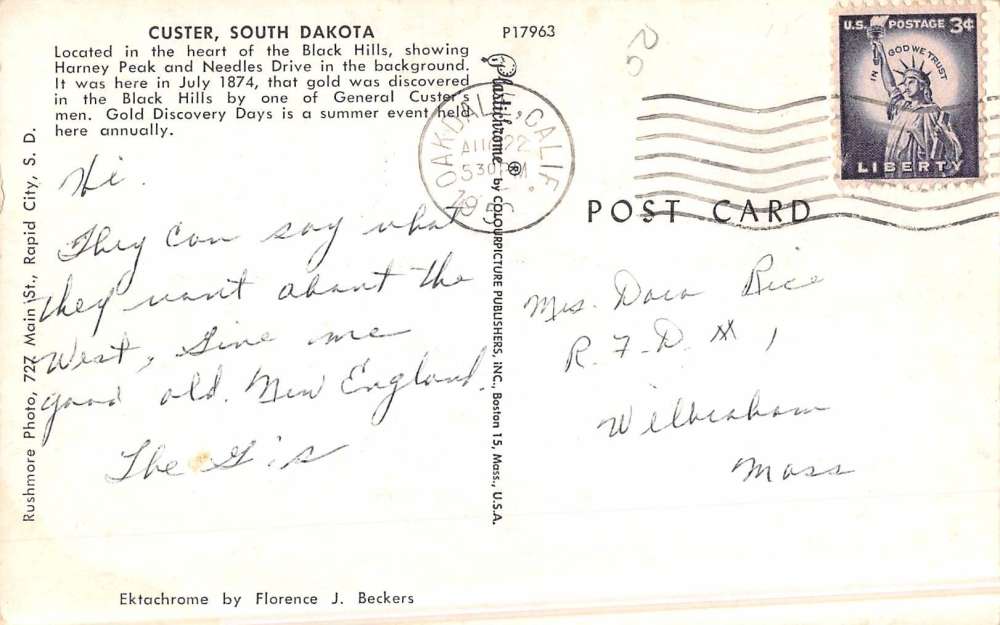 CUSTER, SOUTH DAKOTA
Located in the heart of the Black Hills, showing
Harney Peak and Needles Drive in the background.
It was here in July 1874, that gold was discovered
in the Black Hills by one of General Custer's
men. Gold Discovery Days is a summer event held
here annually.
P17963
25
U.S. POSTAGE 3¢
IN GOD WE TRUST
LIBERTY
OAKDALE, CALIF.
AUG 22
530 PM
195
Hi.
They can say what
they want about the
West, Give me
good old. New England.
The G's
POST CARD
Mrs. Dora Rice
R.F.D. # 1
Wilbraham
Mass
Plastichrome ® by COLOURPICTURE PUBLISHERS, INC., Boston 15, Mass., U.S.A.
Rushmore Photo, 727 Main St., Rapid City, S. D.
Ektachrome by Florence J. Beckers